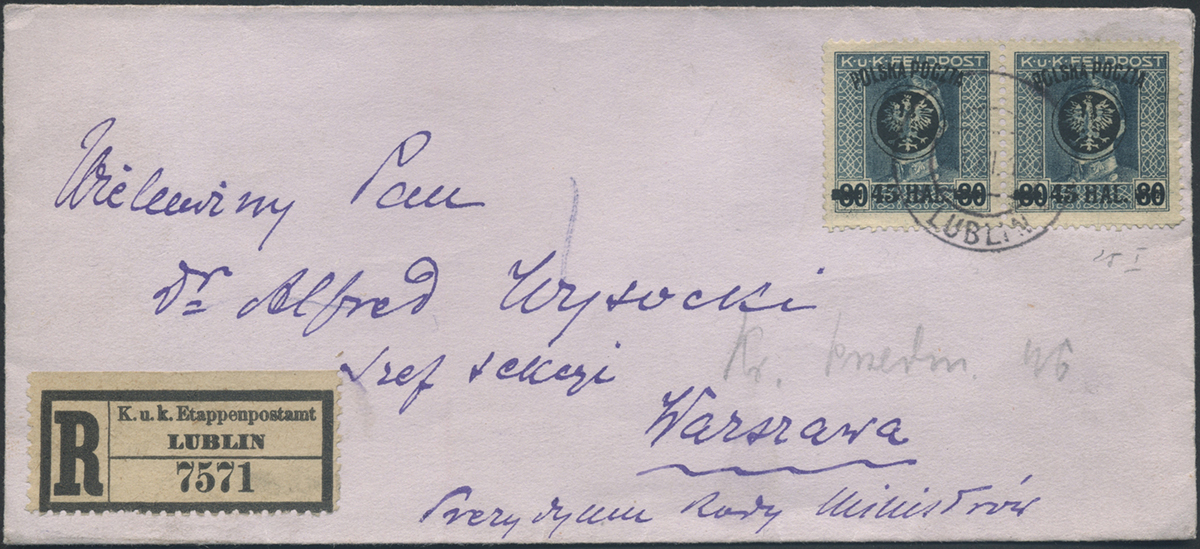 K.u.K. FELDPOST
POLSKA POCZTA
80 45 HAL. 80
K.u.K. FELDPOST
POLSKA POCZTA
80 45 HAL. 80
LUBLIN
Wielmożny Pan
Dr Alfred Wysocki
szef sekcji
Warszawa
Prezydyum Rady Ministrów
R
K. u. k. Etappenpostamt
LUBLIN
7571